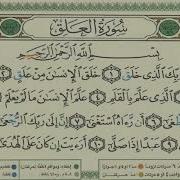 سُورَةُ العَلَقِ
بِسْمِ ٱللَّهِ ٱلرَّحْمَٰنِ ٱلرَّحِيمِ
رَبِّكَ ٱلَّذِى خَلَقَ ١ خَلَقَ ٱلْإِنسَٰنَ مِنْ عَلَقٍ ٢
ٱلَّذِى عَلَّمَ بِٱلْقَلَمِ ٤ عَلَّمَ ٱلْإِنسَٰنَ مَا لَمْ يَعْلَمْ ٥
أَن رَّءَاهُ ٱسْتَغْنَىٰٓ ٧ إِنَّ إِلَىٰ رَبِّكَ
عَبْدًا إِذَا صَلَّىٰٓ ١٠ أَرَءَيْتَ إِن كَانَ عَلَى ٱلْهُدَىٰٓ